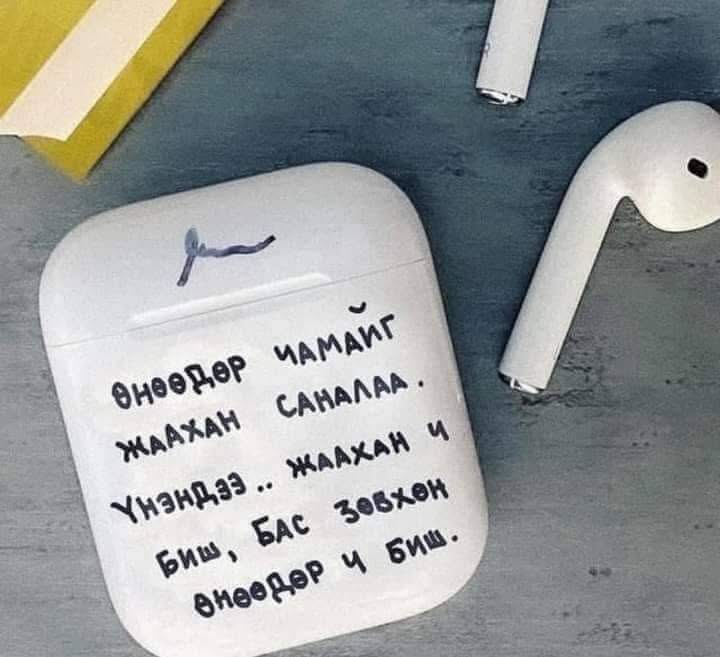 ӨНӨӨДӨР ЧАМАЙГ
ЖААХАН САНАЛАА.
ҮНЭНДЭЭ.. ЖААХАН Ч
БИШ, БАС ЗӨВХӨН
ӨНӨӨДӨР Ч БИШ.